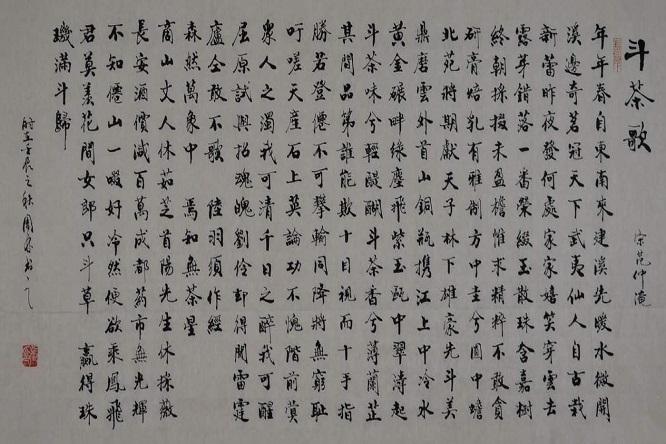 斗茶歌
宋范仲淹
年年春自東南來建溪先暖水微開
溪邊奇茗冠天下武夷仙人自古栽
新蕾昨夜發何處家家嬉笑穿雲去
露芽錯落一番榮綴玉散珠含嘉樹
終朝採掇未盈襜惟求精粹不敢貪
研膏焙乳有雅制方中圭兮圓中蟾
北苑將期獻天子林下雄豪先斗美
鼎磨雲外首山銅瓶携江上中冷水
黃金碾畔綠塵飛紫玉甌中翠濤起
斗茶味兮輕醍醐斗茶香兮薄蘭芷
其間品第誰能欺十目視而十手指
勝若登僊不可攀輸同降將無窮恥
吁嗟天產石上英論功不愧階前蓂
衆人之濁我可清千日之醉我可醒
屈原試與招魂魄劉伶却得聞雷霆
盧仝敢不歌 陸羽須作經
森然萬象中 焉知無茶星
商山丈人休茹芝首陽先生休採薇
長安酒價減百萬成都葯市無光輝
不知僊山一啜好冷然便欲乘風飛
君莫羨花間女郎只斗草 贏得珠
璣滿斗歸
時在壬辰之秋